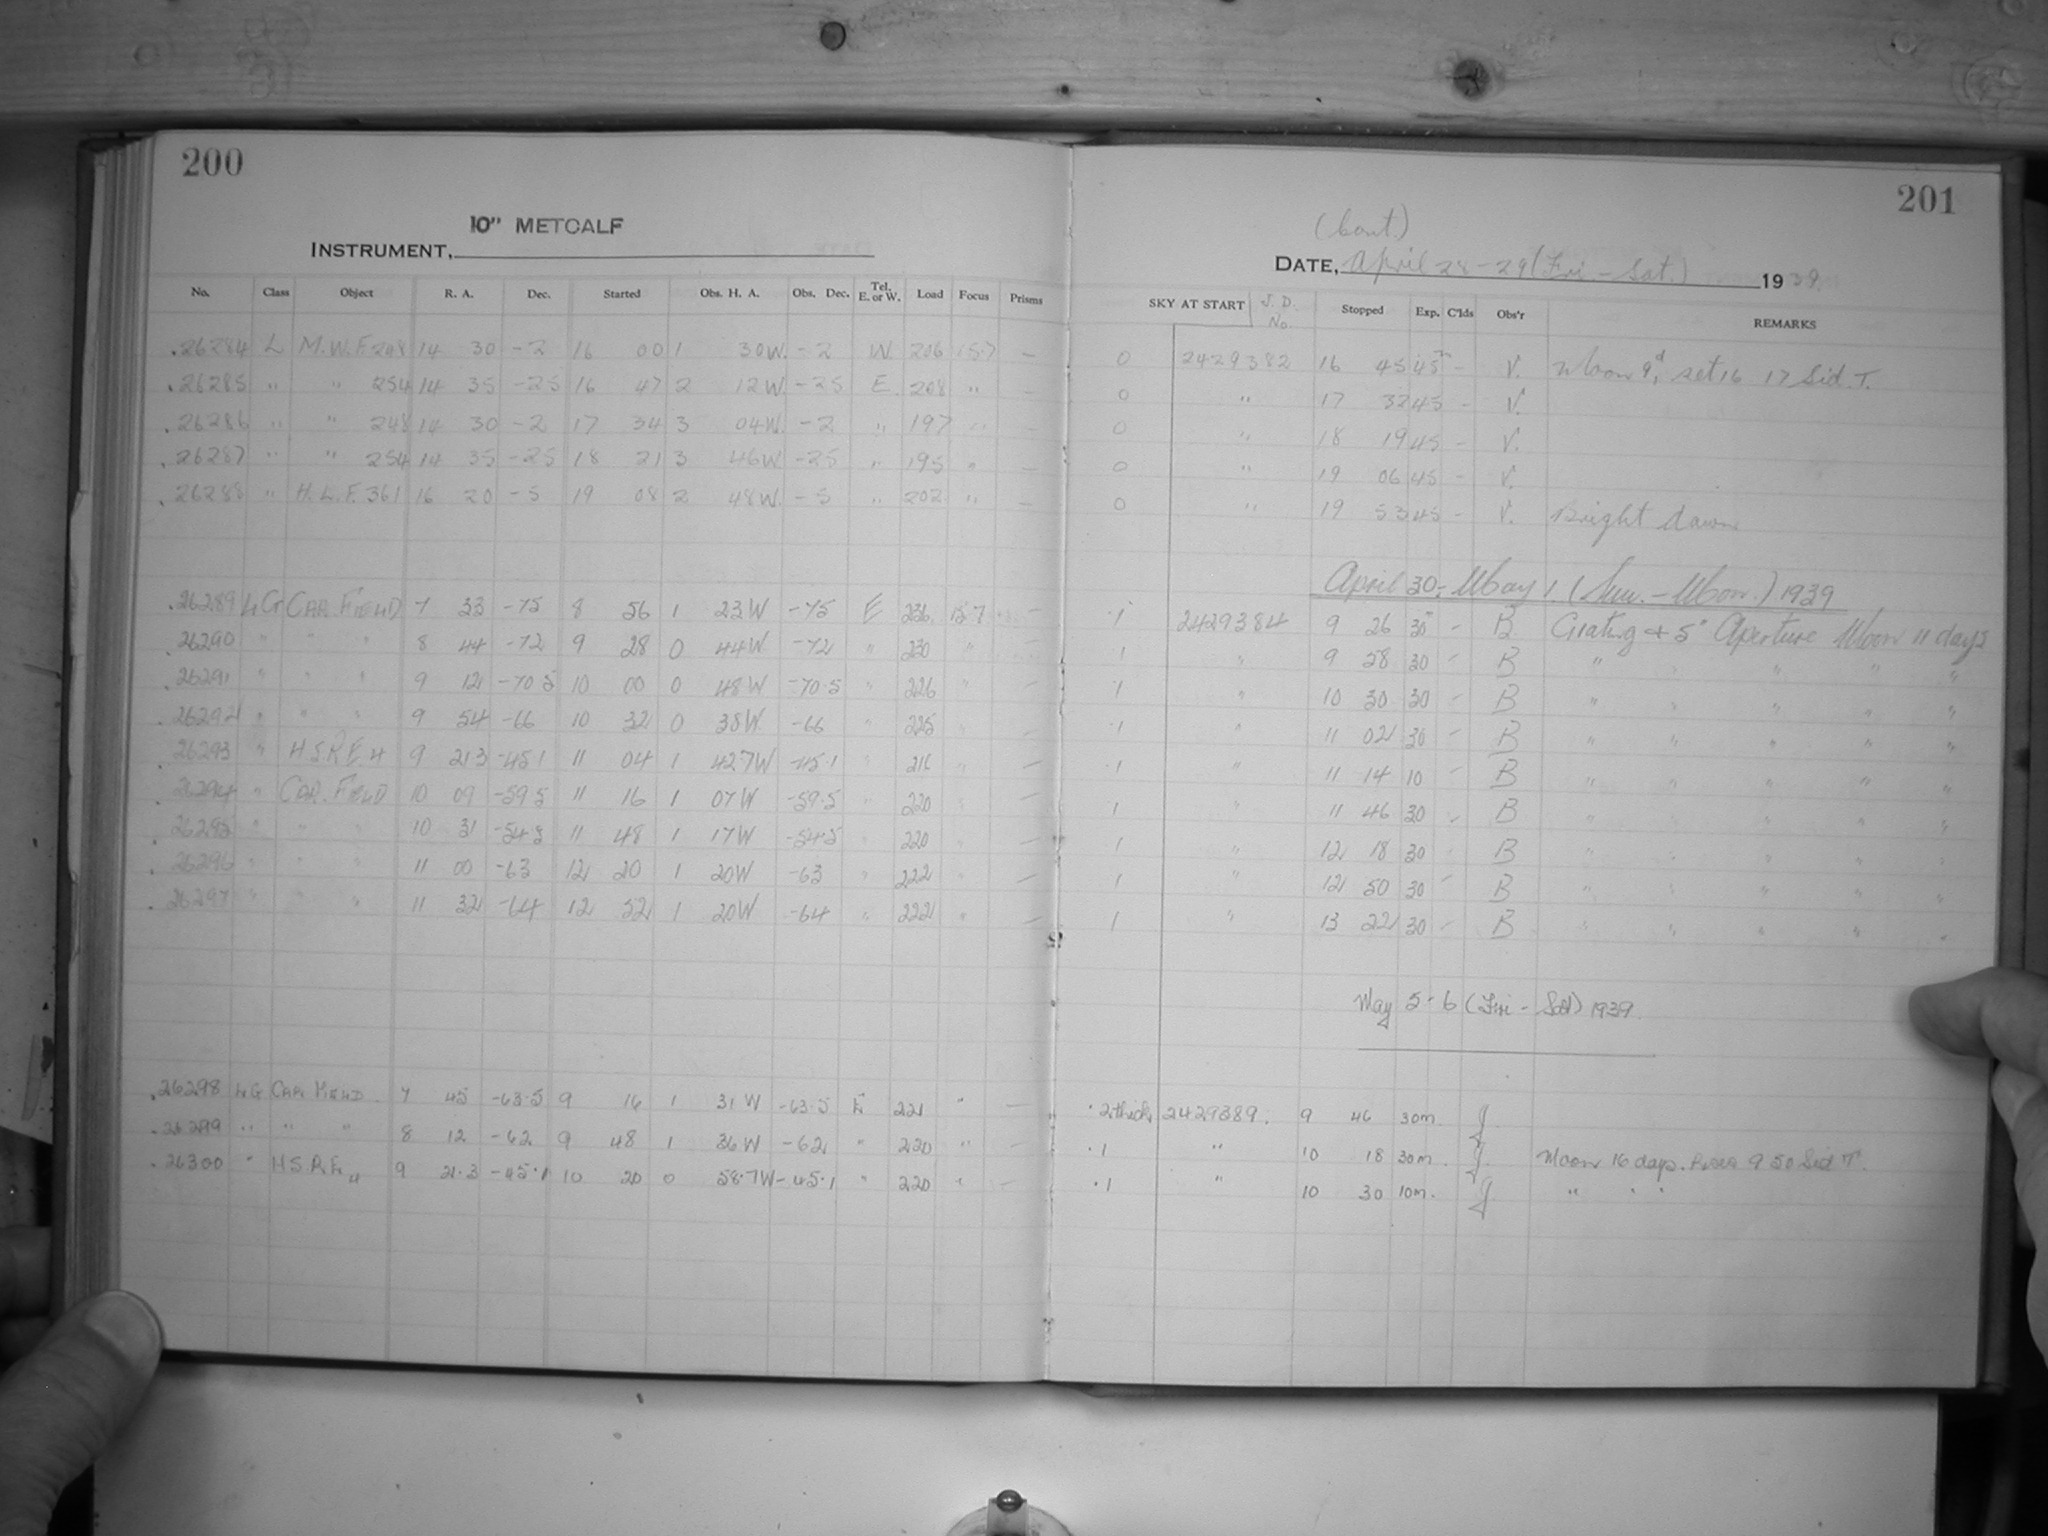 200
10" METCALF
INSTRUMENT,
No. Class Object R. A. Dec. Started Obs. H. A. Obs. Dec. Tel. E. or W. Load Focus Prisms
.26284 L M.W.F. 248 14 30 -2 16 00 1 30W. -2 W. 206 15.7 —
.26285 " " 254 14 35 -25 16 47 2 12W. -25 E. 208 " —
.26286 " " 248 14 30 -2 17 34 3 04W. -2 " 197 " —
.26287 " " 254 14 35 -25 18 21 3 46W -25 " 195 " —
.26288 " H.L.F. 361 16 20 -5 19 08 2 48W. -5 " 202 " —
.26289 LG CAR FIELD 7 33 -75 8 56 1 23W -75 E 236 15.7 —
.26290 " " " 8 44 -72 9 28 0 44W -72 " 230 " —
.26291 " " " 9 12 -70.5 10 00 0 48W -70.5 " 226 " —
.26292 " " " 9 54 -66 10 32 0 38W -66 " 225 " —
.26293 " H.S.R.E.4 9 21.3 -45.1 11 04 1 42.7W -45.1 " 216 " —
.26294 " CAR. FIELD 10 09 -59.5 11 16 1 07W -59.5 " 220 " —
.26295 " " " 10 31 -54.5 11 48 1 17W -54.5 " 220 " —
.26296 " " " 11 00 -63 12 20 1 20W -63 " 222 " —
.26297 " " " 11 32 -64 12 52 1 20W -64 " 222 " —
.26298 LG CAR FIELD 7 45 -63.5 9 16 1 31W -63.5 E 221 " —
.26299 " " " 8 12 -62 9 48 1 36W -62 " 220 " —
.26300 " H.S.R.E. 4 9 21.3 -45.1 10 20 0 58.7W -45.1 " 220 " —
201
(Cont.)
DATE, April 28-29 (Fri-Sat.) 1939.
SKY AT START J.D. No. Stopped Exp. C'lds Obs'r REMARKS
0 2429382 16 45 45m - V. Moon 9d, set 16 17 Sid. T.
0 " 17 32 45 - V.
0 " 18 19 45 - V.
0 " 19 06 45 - V.
0 " 19 53 45 - V. Bright dawn
April 30-May 1. (Sun.-Mon.) 1939
.1 2429384 9 26 30 - B Grating + 5" Aperture Moon 11 days
.1 " 9 58 30 - B " " " " "
.1 " 10 30 30 - B " " " " "
.1 " 11 02 30 - B " " " " "
.1 " 11 14 10 - B " " " " "
.1 " 11 46 30 - B " " " " "
1 " 12 18 30 - B " " " " "
1 " 12 50 30 - B " " " " "
1 " 13 22 30 - B " " " " "
May 5-6 (Fri-Sat) 1939.
.2 thick 2429389. 9 46 30m. J
.1 " 10 18 30m J. Moon 16 days. Rises 9 50 Sid T.
.1 " 10 30 10m. J " " "